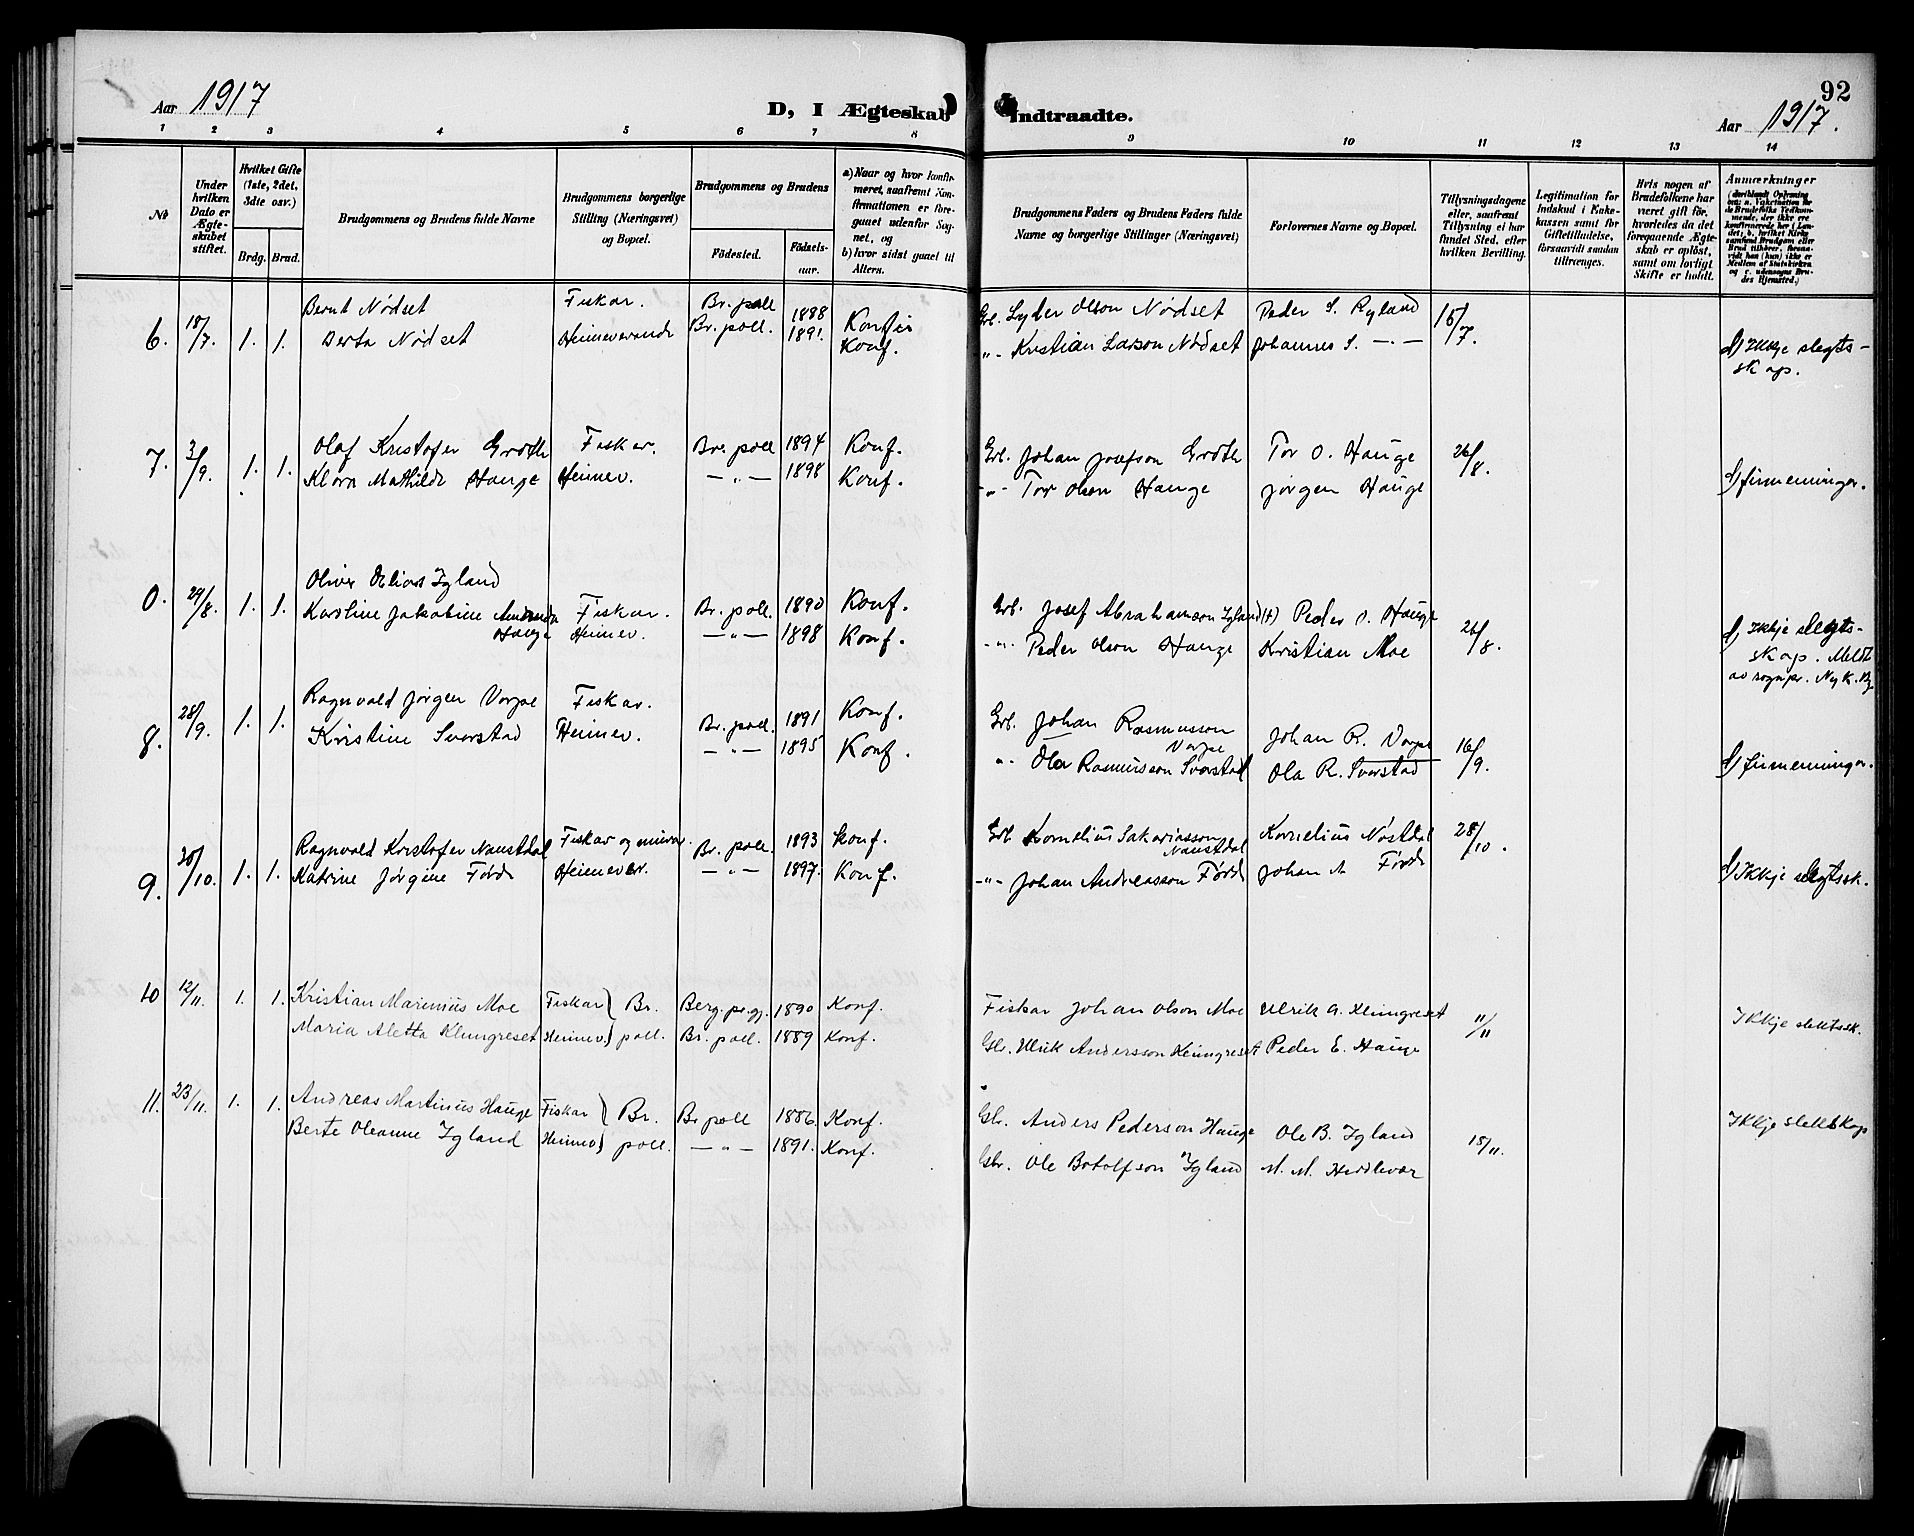 Aar 1917
D, I Ægteskab Indtraadte.
92
Aar 1917.
1 2 3 4 5 6 7 8 9 10 11 12 13 14
No
Under hvilken Dato er Ægteskabet stiftet.
Hvilket Gifte (1ste, 2det, 3die osv.)
Brdg. Brud.
Brudgommens og Brudens fulde Navne
Brudgommens borgerlige Stilling (Næringsvei) og Bopæl.
Brudgommens og Brudens
Födested.
Födselsaar.
a) Naar og hvor konfirmeret, saafremt Konfirmationen er foregaaet udenfor Sognet, og
b) hvor sidst gaaet til Alters.
Brudgommens Faders og Brudens Faders fulde Navne og borgerlige Stillinger (Næringsvei)
Forlovernes Navne og Bopæl.
Tillysningsdagene eller, saafremt Tillysning ei har fundet Sted, efter hvilken Bevilling.
Legitimation for Indskud i Kukekassen samt for Giftetilladelse, forsaavidt saadan tiltrænges.
Hvis nogen af Brudefolkene har været gift för, hvorledes da det foregaaende Ægteskab er oplöst, samt om lovligt Skifte er holdt.
Anmærkninger
Bernt Nødset Fiskar. Br. poll 1888 Konf Grb. Lyder Olson Nødset Peder S. Ryland 15/7.
6. 18/7. 1. 1. Berta Nødset Heimeverande Br. poll. 1891. Konf. „- Kristian Larson Nødset Johannes S. -"- d) Ikkje slegts-
skap.
Olaf Kristofer Grøth Fiskar. Br. poll 1894 Konf. Grb. Johan Josefson Grøth Tor O. Hauge 26/8.
7. 3/9. 1. 1. Klara Mathilde Hauge Heimev. -"- 1898 Konf. -"- Tor Olson Hauge Jørgen Hauge d) firmenninger.
Oliver Elias Igland
0. 29/8. 1. 1. Karoline Jakobine Hauge Fiskar. Br. poll. 1890 Konf. Grb. Josef Abrahamson Igland (+) Peder O. Hauge
Heimev. -"- 1898 Konf. -"- Peder Olson Hauge Kristian Moe 26/8. d) Ikkje slegts-
skap. Meldt
av sognpr. Nyk. Bg
Ragnvald Jørgen Vorpe Fiskar. Br. poll. 1891 Konf. Grb. Johan Rasmusson Vorpe Johan R. Vorpe
8. 28/9. 1. 1. Kristine Svorstad Heimev. -"- 1895 Konf. „- Ola Rasmusson Svorstad Ola R. Svorstad 16/9. d) firmenninger.
Ragnvald Kristofer Naustdal Fiskar og murar. Br. poll. 1893 Konf. Grb. Kornelius Sakariasson Naustdal Kornelius Nøstdal 28/10.
9. 30/10. 1. 1. Katrine Jørgine Førde Heimever. -"- 1897. Konf. -"- Johan Andreasson Førde Johan A Førde d) Ikkje slegtssk.
10 12/11. 1. 1. Kristian Marinius Moe Fiskar } Br. Berg. pr.gj. 1890 Konf. Fiskar Johan Olson Moe Ulrik A. Klungreset 11/11 Ikkje slektssk.
Maria Aletta Klungreset Heimev. } poll. Br. poll. 1889 Konf. Gbr. Ulrik Andersson Klungreset Peder E. Hauge
11. 23/11. 1. 1. Andreas Martinus Hauge Fiskar } Br. Br poll 1886. Konf. Gbr. Anders Pederson Hauge Ole B. Igland 15/11. Ikkje slektskap
Berte Oleanne Igland Heimev } poll. -"- 1891. Konf. Gbr. Ole Botolfson Igland M. M. Herdlevær